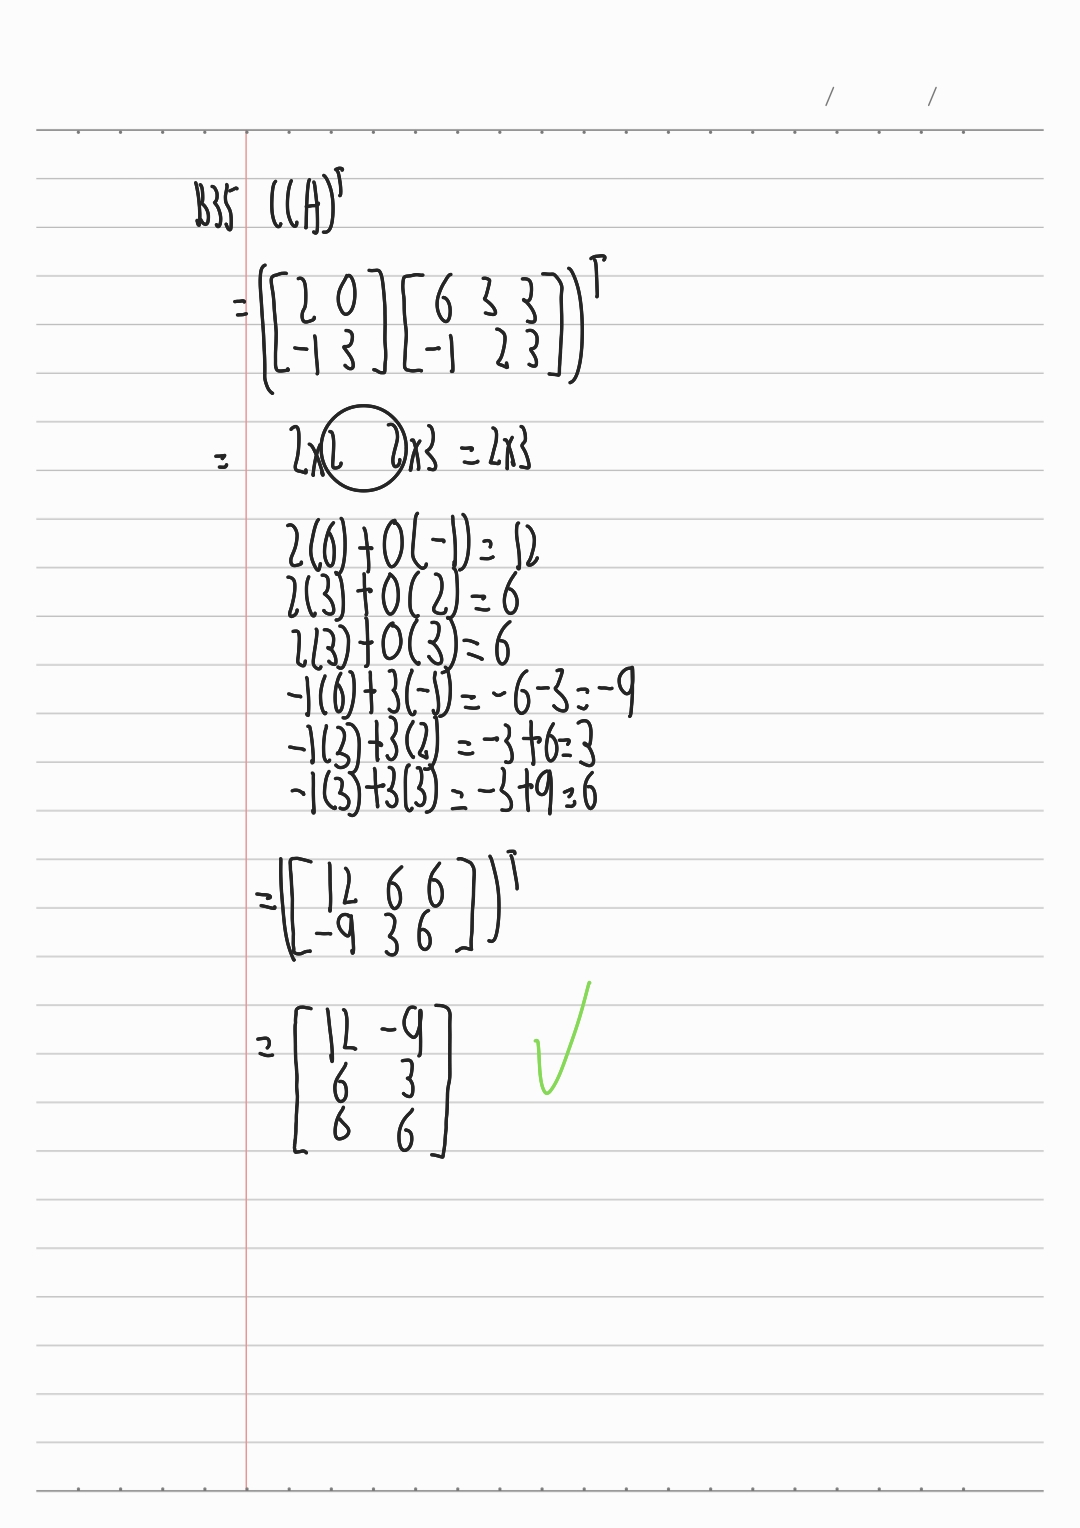 B35 ((A)ᵀ
= ([2 0 -1 3] [6 3 3 -1 2 3])ᵀ
= 2x2 2x3 = 2x3
2(6)+0(-1)=12
2(3)+0(2)=6
2(3)+0(3)=6
-1(6)+3(-1)=-6-3=-9
-1(3)+3(2)=-3+6=3
-1(3)+3(3)=-3+9=6
= ([12 6 6 -9 3 6])ᵀ
= [12 -9
6 3
6 6]